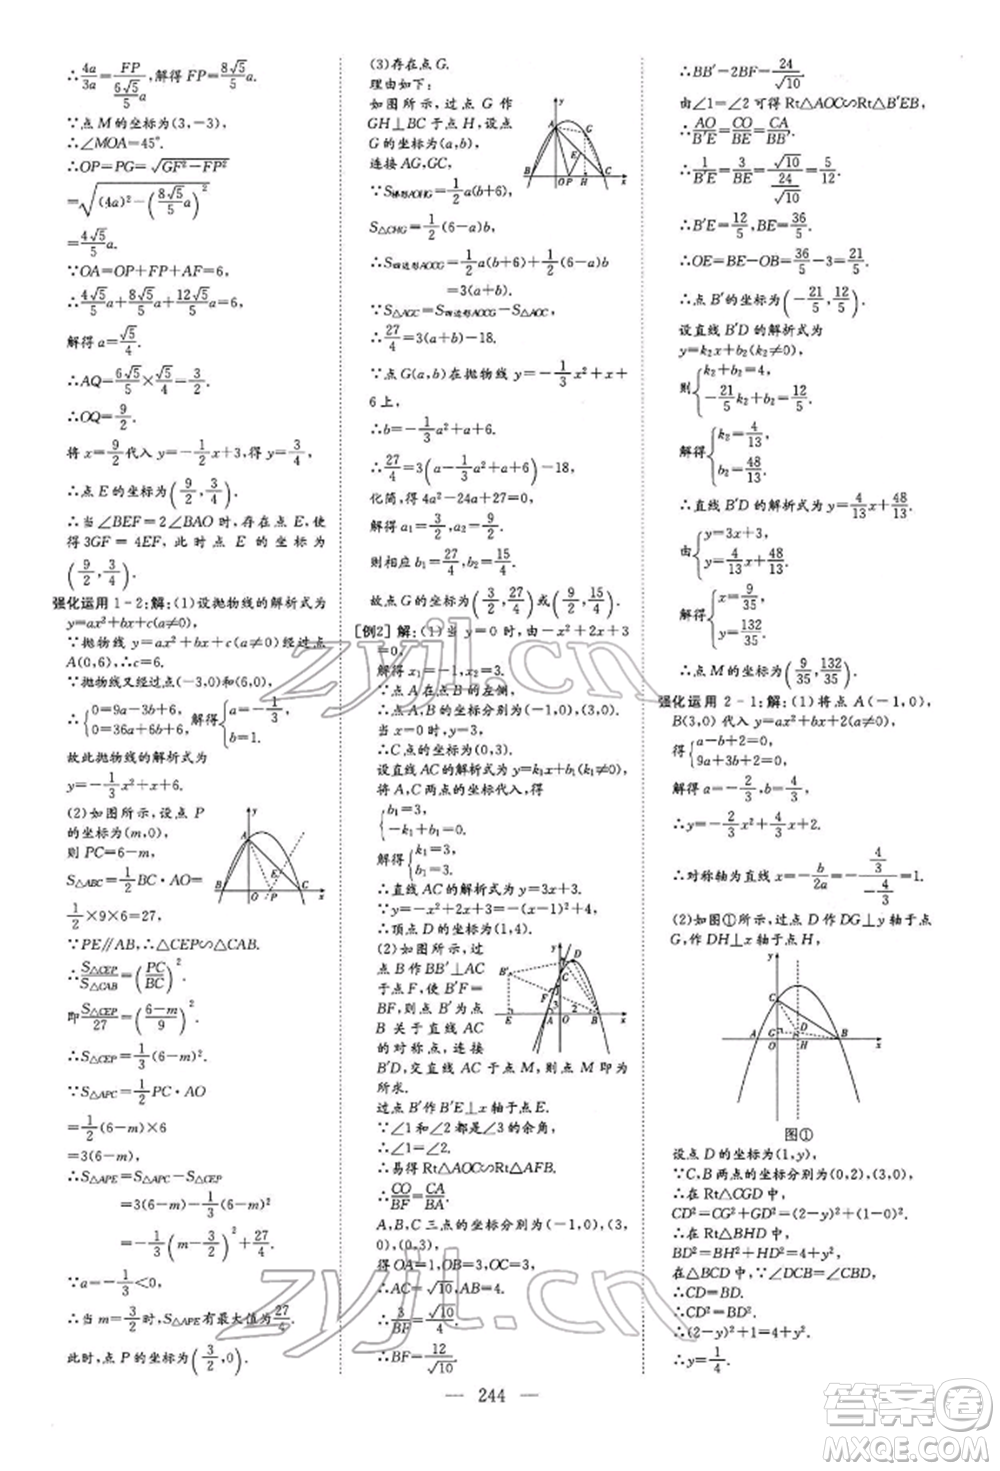 ∴4a/3a=FP/(6√5/5 a),解得 FP=8√5/5 a.
∵点 M 的坐标为(3,-3),
∴∠MOA=45°.
∴OP=PG=√(GF²-FP²)
=√((4a)²-(8√5/5 a)²)
=4√5/5 a.
∵OA=OP+FP+AF=6,
∴4√5/5 a+8√5/5 a+12√5/5 a=6,
解得 a=√5/4.
∴AQ=6√5/5×√5/4=3/2.
∴OQ=9/2.
将 x=9/2代入 y=-1/2x+3,得 y=3/4,
∴点 E 的坐标为(9/2,3/4).
∴当∠BEF=2∠BAO 时,存在点 E,使
得3GF=4EF,此时点 E 的坐标为
(9/2,3/4).
强化运用 1-2:解:(1)设抛物线的解析式为
y=ax²+bx+c(a≠0),
∵抛物线 y=ax²+bx+c(a≠0)经过点
A(0,6),∴c=6.
∵抛物线又经过点(-3,0)和(6,0),
∴{0=9a-3b+6,0=36a+6b+6, 解得{a=-1/3,b=1.
故此抛物线的解析式为
y=-1/3x²+x+6.
(2)如图所示,设点 P
的坐标为(m,0),
则 PC=6-m,
S△ABC=1/2BC·AO=
1/2×9×6=27,
y
A
B
E
C
O
P
x
∵PE∥AB,∴△CEP∽△CAB.
∴S△CEP/S△CAB=(PC/BC)²,
即S△CEP/27=((6-m)/9)².
∴S△CEP=1/3(6-m)².
∵S△APC=1/2PC·AO
=1/2(6-m)×6
=3(6-m),
∴S△APE=S△APC-S△CEP
=3(6-m)-1/3(6-m)²
=-1/3(m-3/2)²+27/4.
∵a=-1/3<0,
∴当 m=3/2时,S△APE有最大值为27/4.
此时,点 P 的坐标为(3/2,0).
(3)存在点 G.
理由如下:
如图所示,过点 G 作
GH⊥BC于点 H,设点
G 的坐标为(a,b),
连接 AG,GC,
y
A
G
E
B
O
P
H
C
x
∵S梯形AOHG=1/2a(b+6),
S△CHG=1/2(6-a)b,
∴S四边形AOCG=1/2a(b+6)+1/2(6-a)b
=3(a+b).
∵S△AGC=S四边形AOCG-S△AOC,
∴27/4=3(a+b)-18.
∵点 G(a,b)在抛物线 y=-1/3x²+x+
6上,
∴b=-1/3a²+a+6.
∴27/4=3(a-1/3a²+a+6)-18,
化简,得 4a²-24a+27=0,
解得 a₁=3/2,a₂=9/2.
则相应 b₁=27/4,b₂=15/4.
故点 G 的坐标为(3/2,27/4)或(9/2,15/4).
[例2]解:(1)当 y=0 时,由-x²+2x+3
=0,
解得 x₁=-1,x₂=3.
∵点 A 在点 B 的左侧,
∴点 A,B 的坐标分别为(-1,0),(3,0).
当 x=0 时,y=3,
∴C 点的坐标为(0,3).
设直线 AC 的解析式为 y=k₁x+b₁(k₁≠0),
将 A,C 两点的坐标代入,得
{b₁=3,-k₁+b₁=0.
解得{k₁=3,b₁=3.
∴直线 AC 的解析式为 y=3x+3.
∵y=-x²+2x+3=-(x-1)²+4,
∴顶点 D 的坐标为(1,4).
(2)如图所示,过
点 B 作 BB′⊥AC
于点 F,使 B′F=
BF,则点 B′为点
B 关于直线 AC
的对称点,连接
y
D
C
B′
F
E
A
O
B
x
1
2
3
B′D,交直线 AC 于点 M,则点 M 为
所求.
过点 B′作 B′E⊥x 轴于点 E.
∵∠1和∠2都是∠3的余角,
∴∠1=∠2.
∴易得 Rt△AOC∽Rt△AFB.
∴CO/BF=CA/BA.
A,B,C 三点的坐标分别为(-1,0),(3,
0),(0,3),
得 OA=1,OB=3,OC=3.
∴AC=√10,AB=4.
∴3/BF=√10/4.
∴BF=12/√10.
∴BB′=2BF=24/√10.
由∠1=∠2可得 Rt△AOC∽Rt△B′EB,
∴AO/B′E=CO/BE=CA/BB′.
∴1/B′E=3/BE=√10/(24/√10)=5/12.
∴B′E=12/5,BE=36/5.
∴OE=BE-OB=36/5-3=21/5.
∴点 B′的坐标为(-21/5,12/5).
设直线 B′D 的解析式为
y=k₂x+b₂(k₂≠0),
则{k₂+b₂=4,-21/5k₂+b₂=12/5.
解得{k₂=4/13,b₂=48/13.
∴直线 B′D 的解析式为 y=4/13x+48/13.
由{y=3x+3,y=4/13x+48/13,
解得{x=9/35,y=132/35.
∴点 M 的坐标为(9/35,132/35).
强化运用 2-1:解:(1)将点 A(-1,0),
B(3,0)代入 y=ax²+bx+2(a≠0),
得{a-b+2=0,9a+3b+2=0.
解得 a=-2/3,b=4/3.
∴y=-2/3x²+4/3x+2.
∴对称轴为直线 x=-b/2a=-(4/3)/(-4/3)=1.
(2)如图①,过点 D 作 DG⊥y 轴于点
G,作 DH⊥x 轴于点 H,
y
C
G
D
A
O
H
B
x
图①
设点 D 的坐标为(1,y),
∵C,B 两点的坐标分别为(0,2),(3,0),
∴在 Rt△CGD 中,
CD²=CG²+GD²=(2-y)²+1,
∴在 Rt△BHD 中,
BD²=BH²+HD²=4+y².
在△BCD 中,∵∠DCB=∠CBD,
∴CD=BD.
∴CD²=BD².
∴(2-y)²+1=4+y².
∴y=1/4.
— 244 —
zyjl.cn
zyjl.cn
答案圈
MXQE.COM